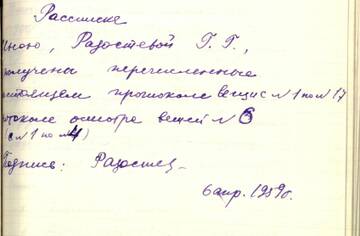 Расписка
Мною, Радостевой Г. Г.,
получены перечисленные
протоколе вещи с N1 по N17
протоколе осмотре вещей N 6
(с N1 по 4)
Подпись: Радостев
6 апр. 1959г.